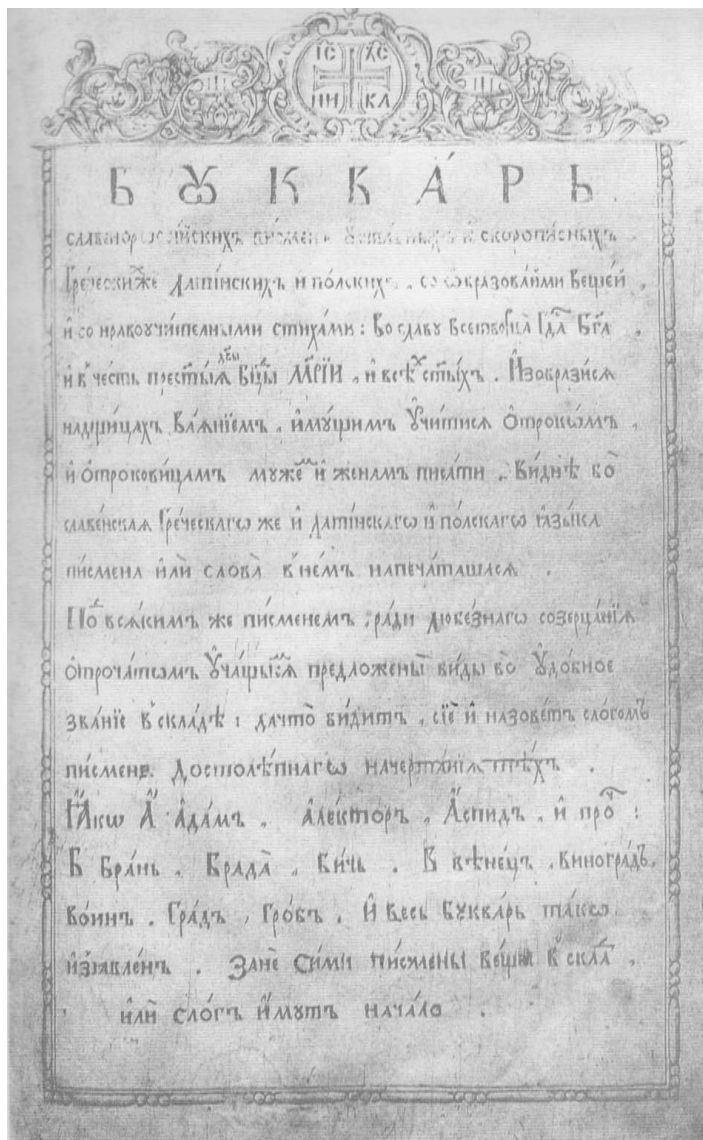 ІС ХС
НИ КА
БꙊККА́РЬ
славеноросси́йскихъ пи́сменъ и҆ скоропи́сныхъ
Гре́ческихже Лати́нскихъ и по́лскихъ, со ѡ҆бразова́нїи веще́й,
и҆ со нравоꙋчи́телными стиха́ми: Во сла́вꙋ Всетворца̀ Гд҇а Бг҃а,
и въ че́сть прест҃ы́ѧ Бц҃ы дв҃ы МАРІ́И, и҆ всѣ́хъ ст҃ы́хъ. И҆зобрази́сѧ
на дщи́цахъ ваѧ́нїемъ, и҆мꙋ́щимъ ᲂу҆чи́тисѧ ѻ҆трокѡ́мъ,
и҆ ѻ҆трокови́цамъ мꙋже́мъ и҆ жена́мъ писа́ти. Ви́днѣ во̀
славе́нскаѧ Гре́ческагѡ же и҆ Лати́нскагѡ и҆ по́лскагѡ ꙗ҆зы́ка
пи́смена и҆лѝ слова̀ въ не́мъ напеча́ташасѧ.
По́д всѧ́кимъ же пи́сменемъ, ра́ди любе́знагѡ созерца́нїѧ
ѻ҆троча́тѡмъ ᲂу҆ча́щымсѧ предложены̀ ви́ды во ᲂу҆до́бное
зва́нїе въ скла́дѣ: да что̀ ви́дитъ, сїѐ и҆ назове́тъ сло́гомъ
пи́сменъ достолѣ́пнагѡ начерта́нїѧ тѣ́хъ.
Ꙗ҆́кѡ А҆ А҆да́мъ, А҆ле́кторъ, А҆́спидъ, и҆ про́ч:
Б Бра́нь, Брада̀, Би́чь. В вѣне́цъ, виногра́дъ,
во́инъ. Гра́дъ, гро́бъ. И҆ ве́сь Бꙋква́рь та́кѡ
и҆з̾ѧвле́нъ. Занѐ си́ми пи́смены ве́щы въ скла́д,
и҆лѝ сло́гъ и҆́мꙋтъ нача́ло.